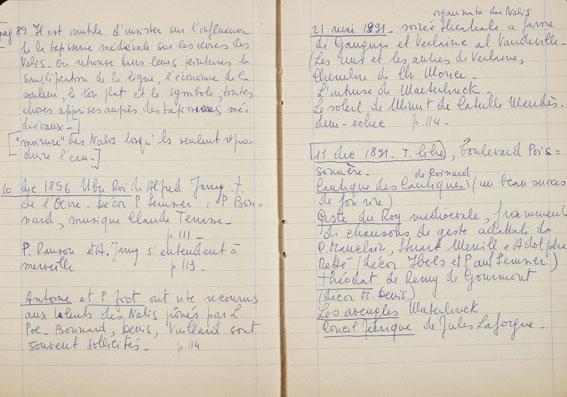 pag 89. Il est inutile d'insister sur l'influence
de la tapisserie médiévale sur les œuvres des
Nabis. On retrouve dans leurs teintures la
simplification de la ligne, l'économie de la
couleur, le ton plat et le symbole, toutes
choses apprises auprès des tapisseries mé
diévales -
["moirure" des Nabis lorsqu'ils veulent repro
duire l'eau -]
10 dic 1896 Ubu Roi di Alfred Jarry - t.
de l'Œuvre - décor P. Serusier, P Bon-
nard, musique Claude Terrasse -
p. 111 -
P. Ranson et A. Jarry s'entendent à
merveille p. 113
Antoine et P. Fort ont eu recours
aux talents des Nabis prônés par L.
Poe - Bonnard, Denis, Vuillard sont
souvent sollicités - p. 114
organizzata dai Nabis
21 mai 1891 - soirée théâtrale a favore
di Gauguin et Verlaine al Vaudeville -
(Les uns et les autres de Verlaine,
Cherubin de Ch Morice -
L'intruse de Maeterlinck -
Le soleil de Minuit de Catulle Mendès -
demi-echec p. 114 -
11 dic 1891 - T. libre, boulevard Pois=
sonnière - de Roinard
Cantique des Cantiques (un beau succès
de fou rire)
Geste du Roy médiévale, frammenti
di chansons de geste adattati da
C. Mauclair, Stuart Merrill e Adolphe
Retté (décor Ibels et Paul Serusier)
Théodat de Remy de Gourmont
(décor M. Denis)
Les aveugles Maeterlinck
Concile féerique de Jules Laforgue -